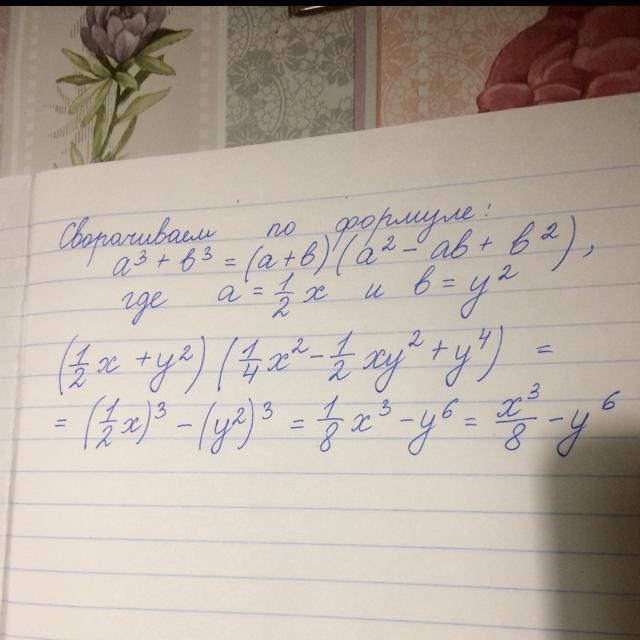 Сворачиваем по формуле:
a³ + b³ = (a+b)(a² - ab + b²),
где a = 1/2 x и b = y²
(1/2 x + y²)(1/4 x² - 1/2 xy² + y⁴) =
= (1/2 x)³ - (y²)³ = 1/8 x³ - y⁶ = x³/8 - y⁶